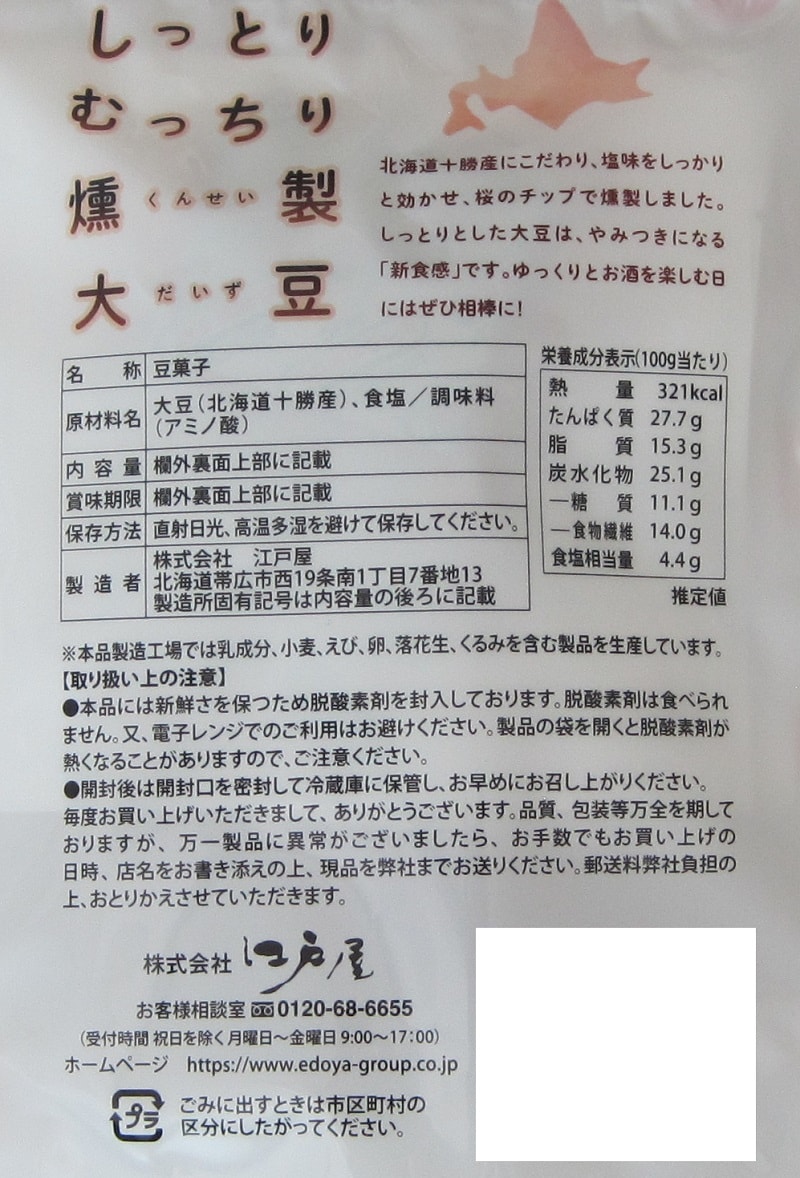 しっとり
むっちり
燻くんせい製
大だいず豆
北海道十勝産にこだわり、塩味をしっかり
と効かせ、桜のチップで燻製しました。
しっとりとした大豆は、やみつきになる
「新食感」です。ゆっくりとお酒を楽しむ日
にはぜひ相棒に!
名称 豆菓子
原材料名 大豆(北海道十勝産)、食塩/調味料
(アミノ酸)
内容量 欄外裏面上部に記載
賞味期限 欄外裏面上部に記載
保存方法 直射日光、高温多湿を避けて保存してください。
製造者 株式会社 江戸屋
北海道帯広市西19条南1丁目7番地13
製造所固有記号は内容量の後ろに記載
栄養成分表示(100g当たり)
熱量 321kcal
たんぱく質 27.7g
脂質 15.3g
炭水化物 25.1g
―糖質 11.1g
―食物繊維 14.0g
食塩相当量 4.4g
推定値
※本品製造工場では乳成分、小麦、えび、卵、落花生、くるみを含む製品を生産しています。
【取り扱い上の注意】
●本品には新鮮さを保つため脱酸素剤を封入しております。脱酸素剤は食べられ
ません。又、電子レンジでのご利用はお避けください。製品の袋を開くと脱酸素剤が
熱くなることがありますので、ご注意ください。
●開封後は開封口を密封して冷蔵庫に保管し、お早めにお召し上がりください。
毎度お買い上げいただきまして、ありがとうございます。品質、包装等万全を期して
おりますが、万一製品に異常がございましたら、お手数でもお買い上げの
日時、店名をお書き添えの上、現品を弊社までお送りください。郵送料弊社負担の
上、おとりかえさせていただきます。
株式会社 江戸屋
お客様相談室 0120-68-6655
(受付時間 祝日を除く月曜日～金曜日 9:00～17:00)
ホームページ https://www.edoya-group.co.jp
プラ
ごみに出すときは市区町村の
区分にしたがってください。